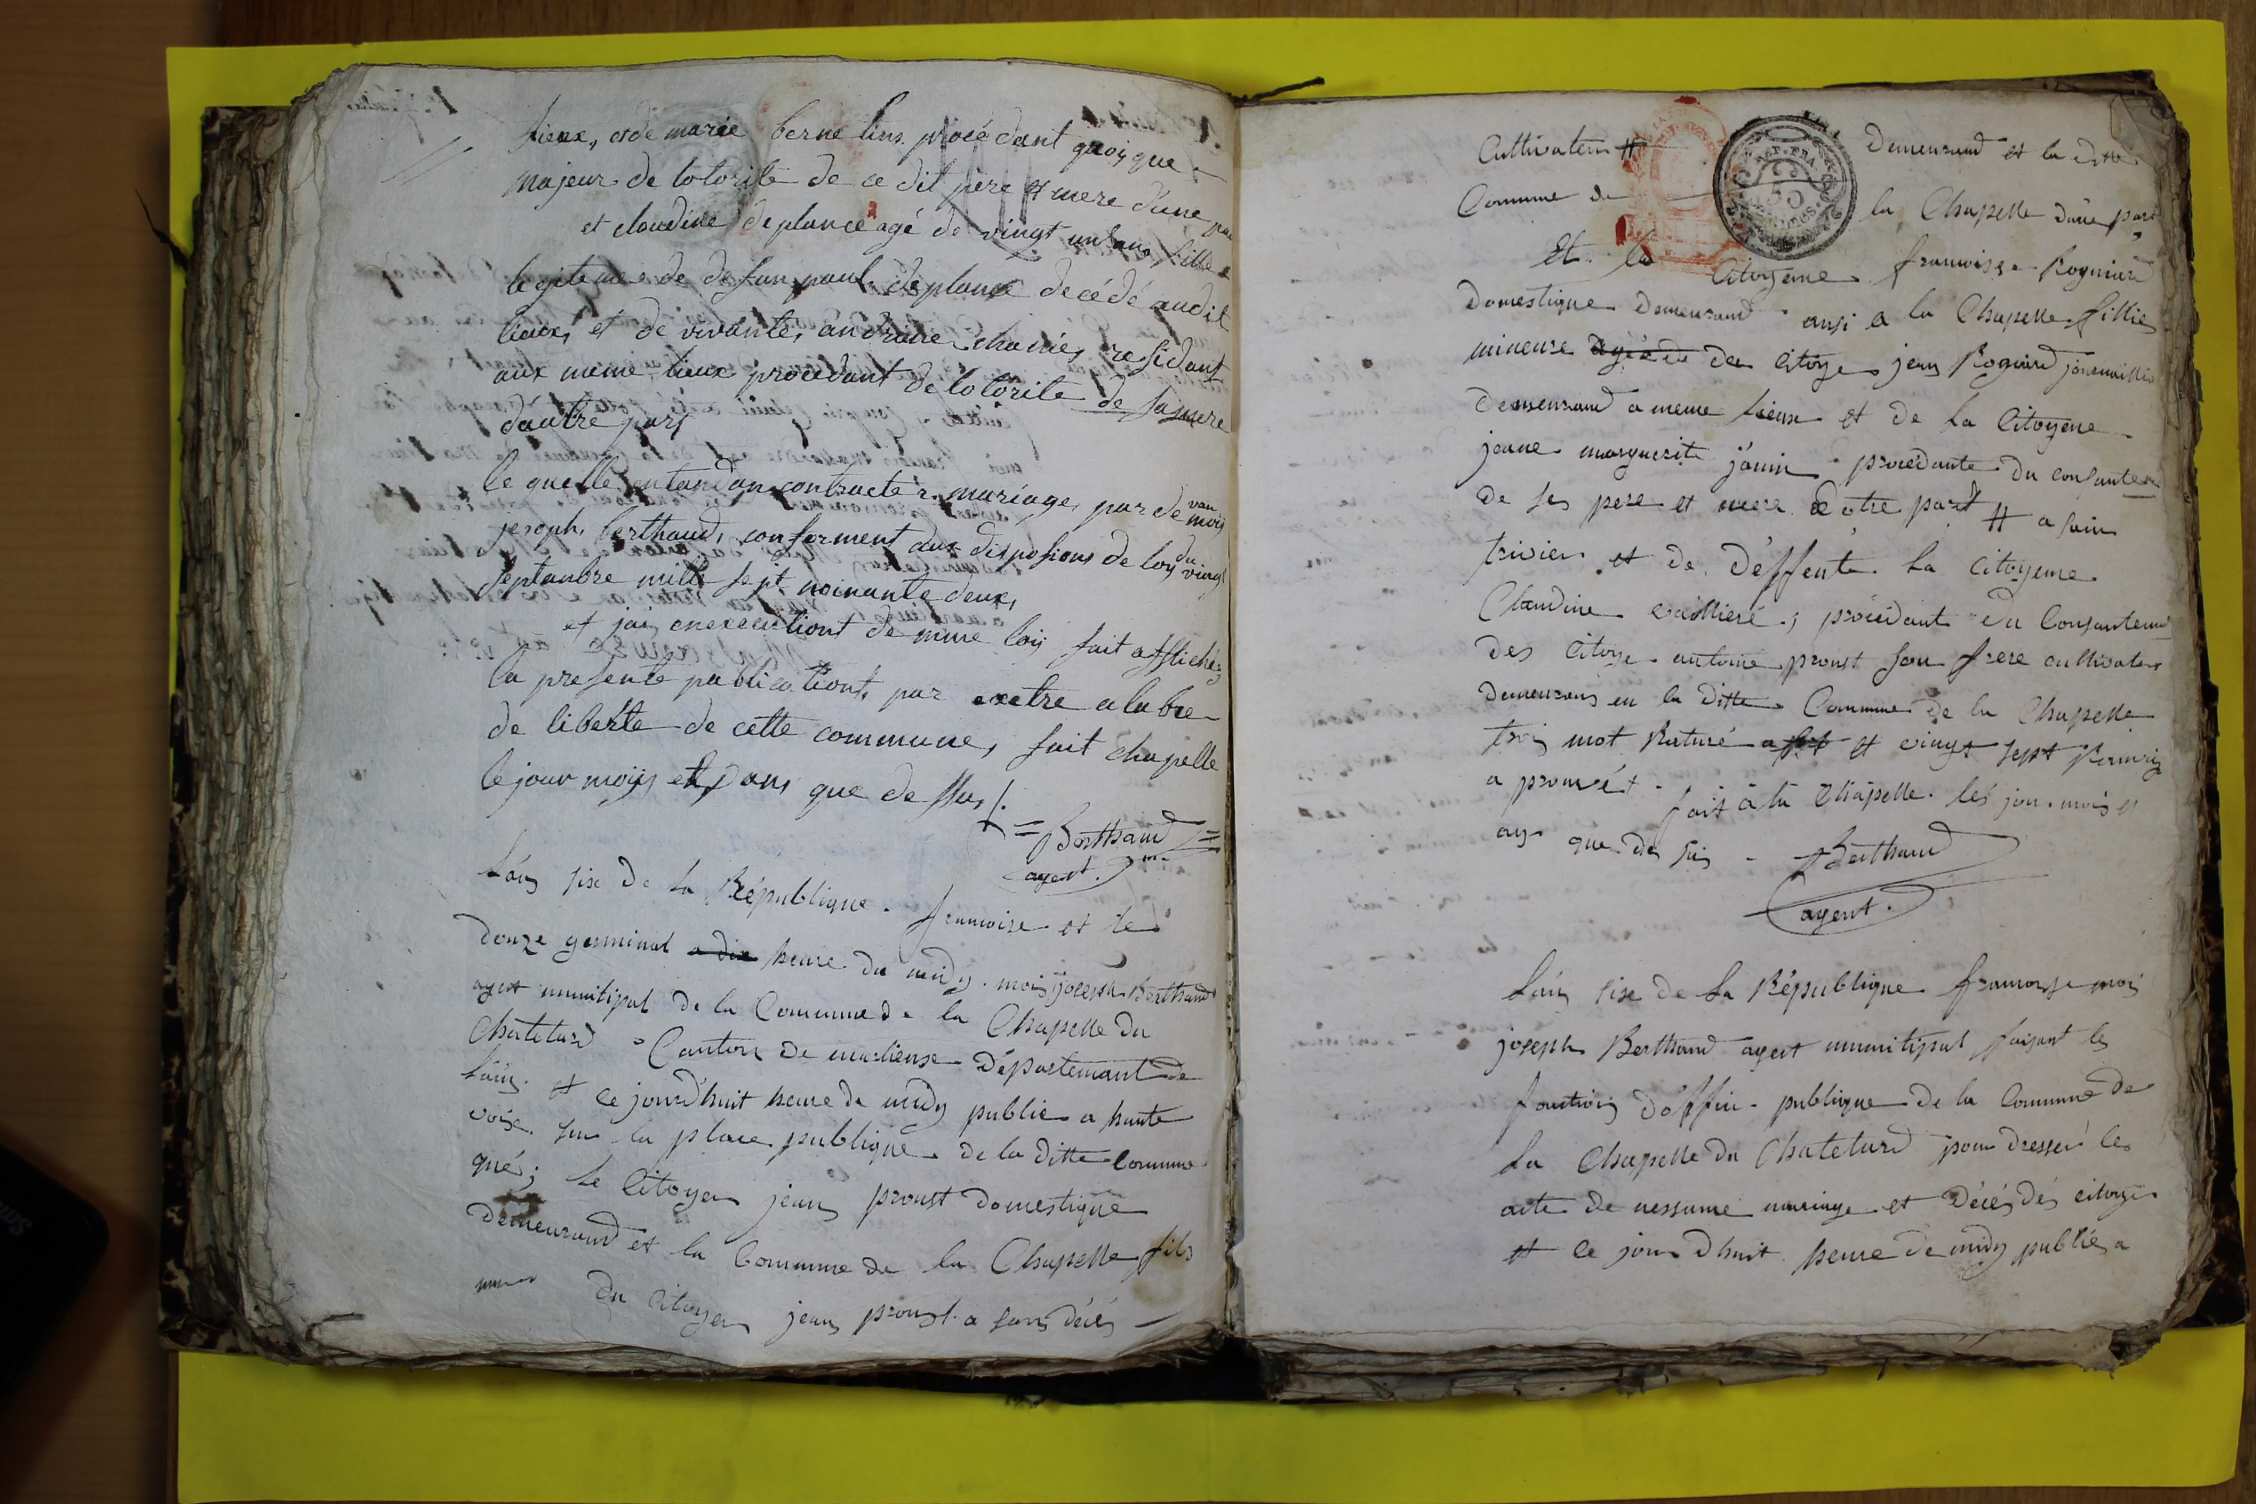 lieux, et de marie berne lins procédant quoyque
majeur de lotorite de ce dit pere et mere d'une par
et cloudine deplance agé de vingt un ans fille
legiteme de defun paul deplance decédé audit
lieux, et de vivante, andraie chanie, residant
aux meme lieux procedant de lotorite de sa mere
d'autre part
le quelle entandan contracter mariage, par devan mois
joseph berthaud, conforment aux disposions de loy du vingt
septanbre mille sept noinante deux,
et jai en execution de mme lois fait affiché
la presente publications par extre a labre
de liberte de cette commune, fait chapelle
le jour moys et dans que de ssus /.
= Berthaud =
agent. m.
L'an sixe de la République francoise et le
douze germinal a dix heure du midy. mois joseph Berthaud
agent munitipal de la Commune de la Chapelle du
Chatelard Canton de marlieux Départemant de
Lain. et ce jourd'huit heure de midy publie a haute
voixe sur la place publique de la ditte commune
qué; Le Citoyen jean proust domestique
demeurand et la Commune de la Chapelle fils
du Citoyen jean proust a sons décés
Cultivateur # demeurand et la ditte
Commune de la Chapelle d'une part
REP. FRA.
50
Et la Citoyene francoisse Rogniard
domestique demeurand ausi a la Chapelle fillie
mineure agée de des Citoye jean Rogniard journaillier
demeurand a meme Lieux et de la Citoyene
jeane marguerite jamin procédante du consantem
de ses pere et mere dotre part # a sain
trivier et de deffente la Citoyene
Claudine procédant du Consantement
des Citoye antoine proust son frere cultivateur
demeurans en la ditte Commune de la Chapelle
trois mot Raturé et vingt sept
a prouvét. fait a la Chapelle les jour mois et
ans que de sus Berthaud
agent.
L'an sixe de la République francoisse mois
joseph Berthaud agent munitipal faisant les
fonctions d'offin. publique de la Commune de
La Chapelle du Chatelard pour dresser les
acte de nessume mariage et décés dés citoye
et ce jour dhuit heure de midy publié a